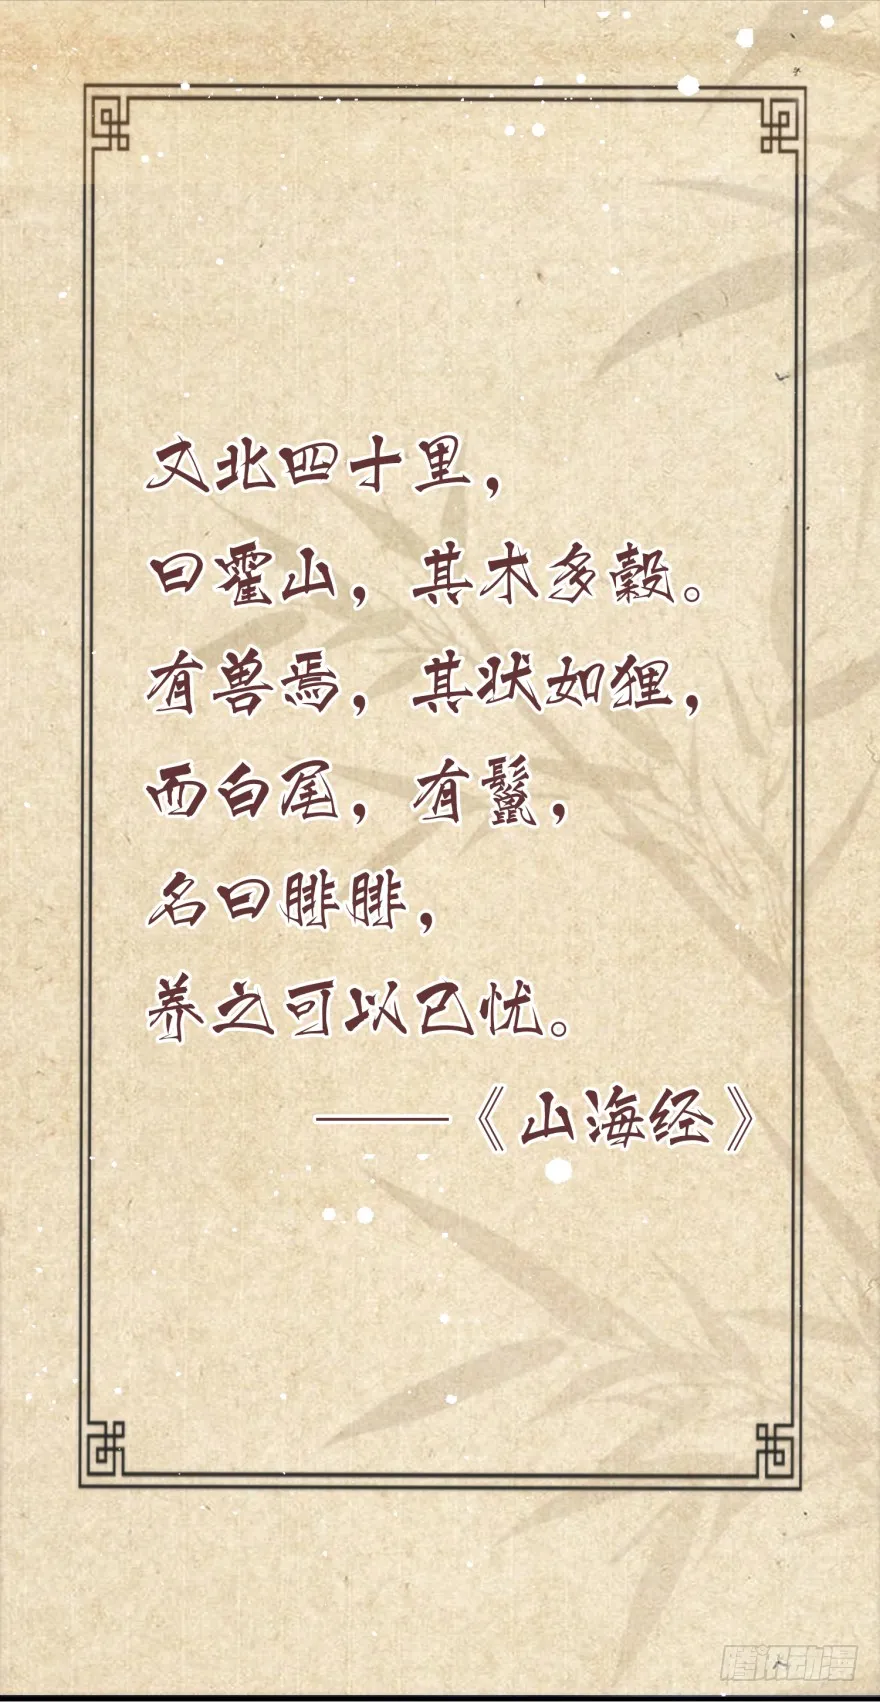 又北四十里，
曰霍山，其木多榖。
有兽焉，其状如狸，
而白尾，有鬣，
名曰腓腓，
养之可以已忧。
——《山海经》
腾讯动漫